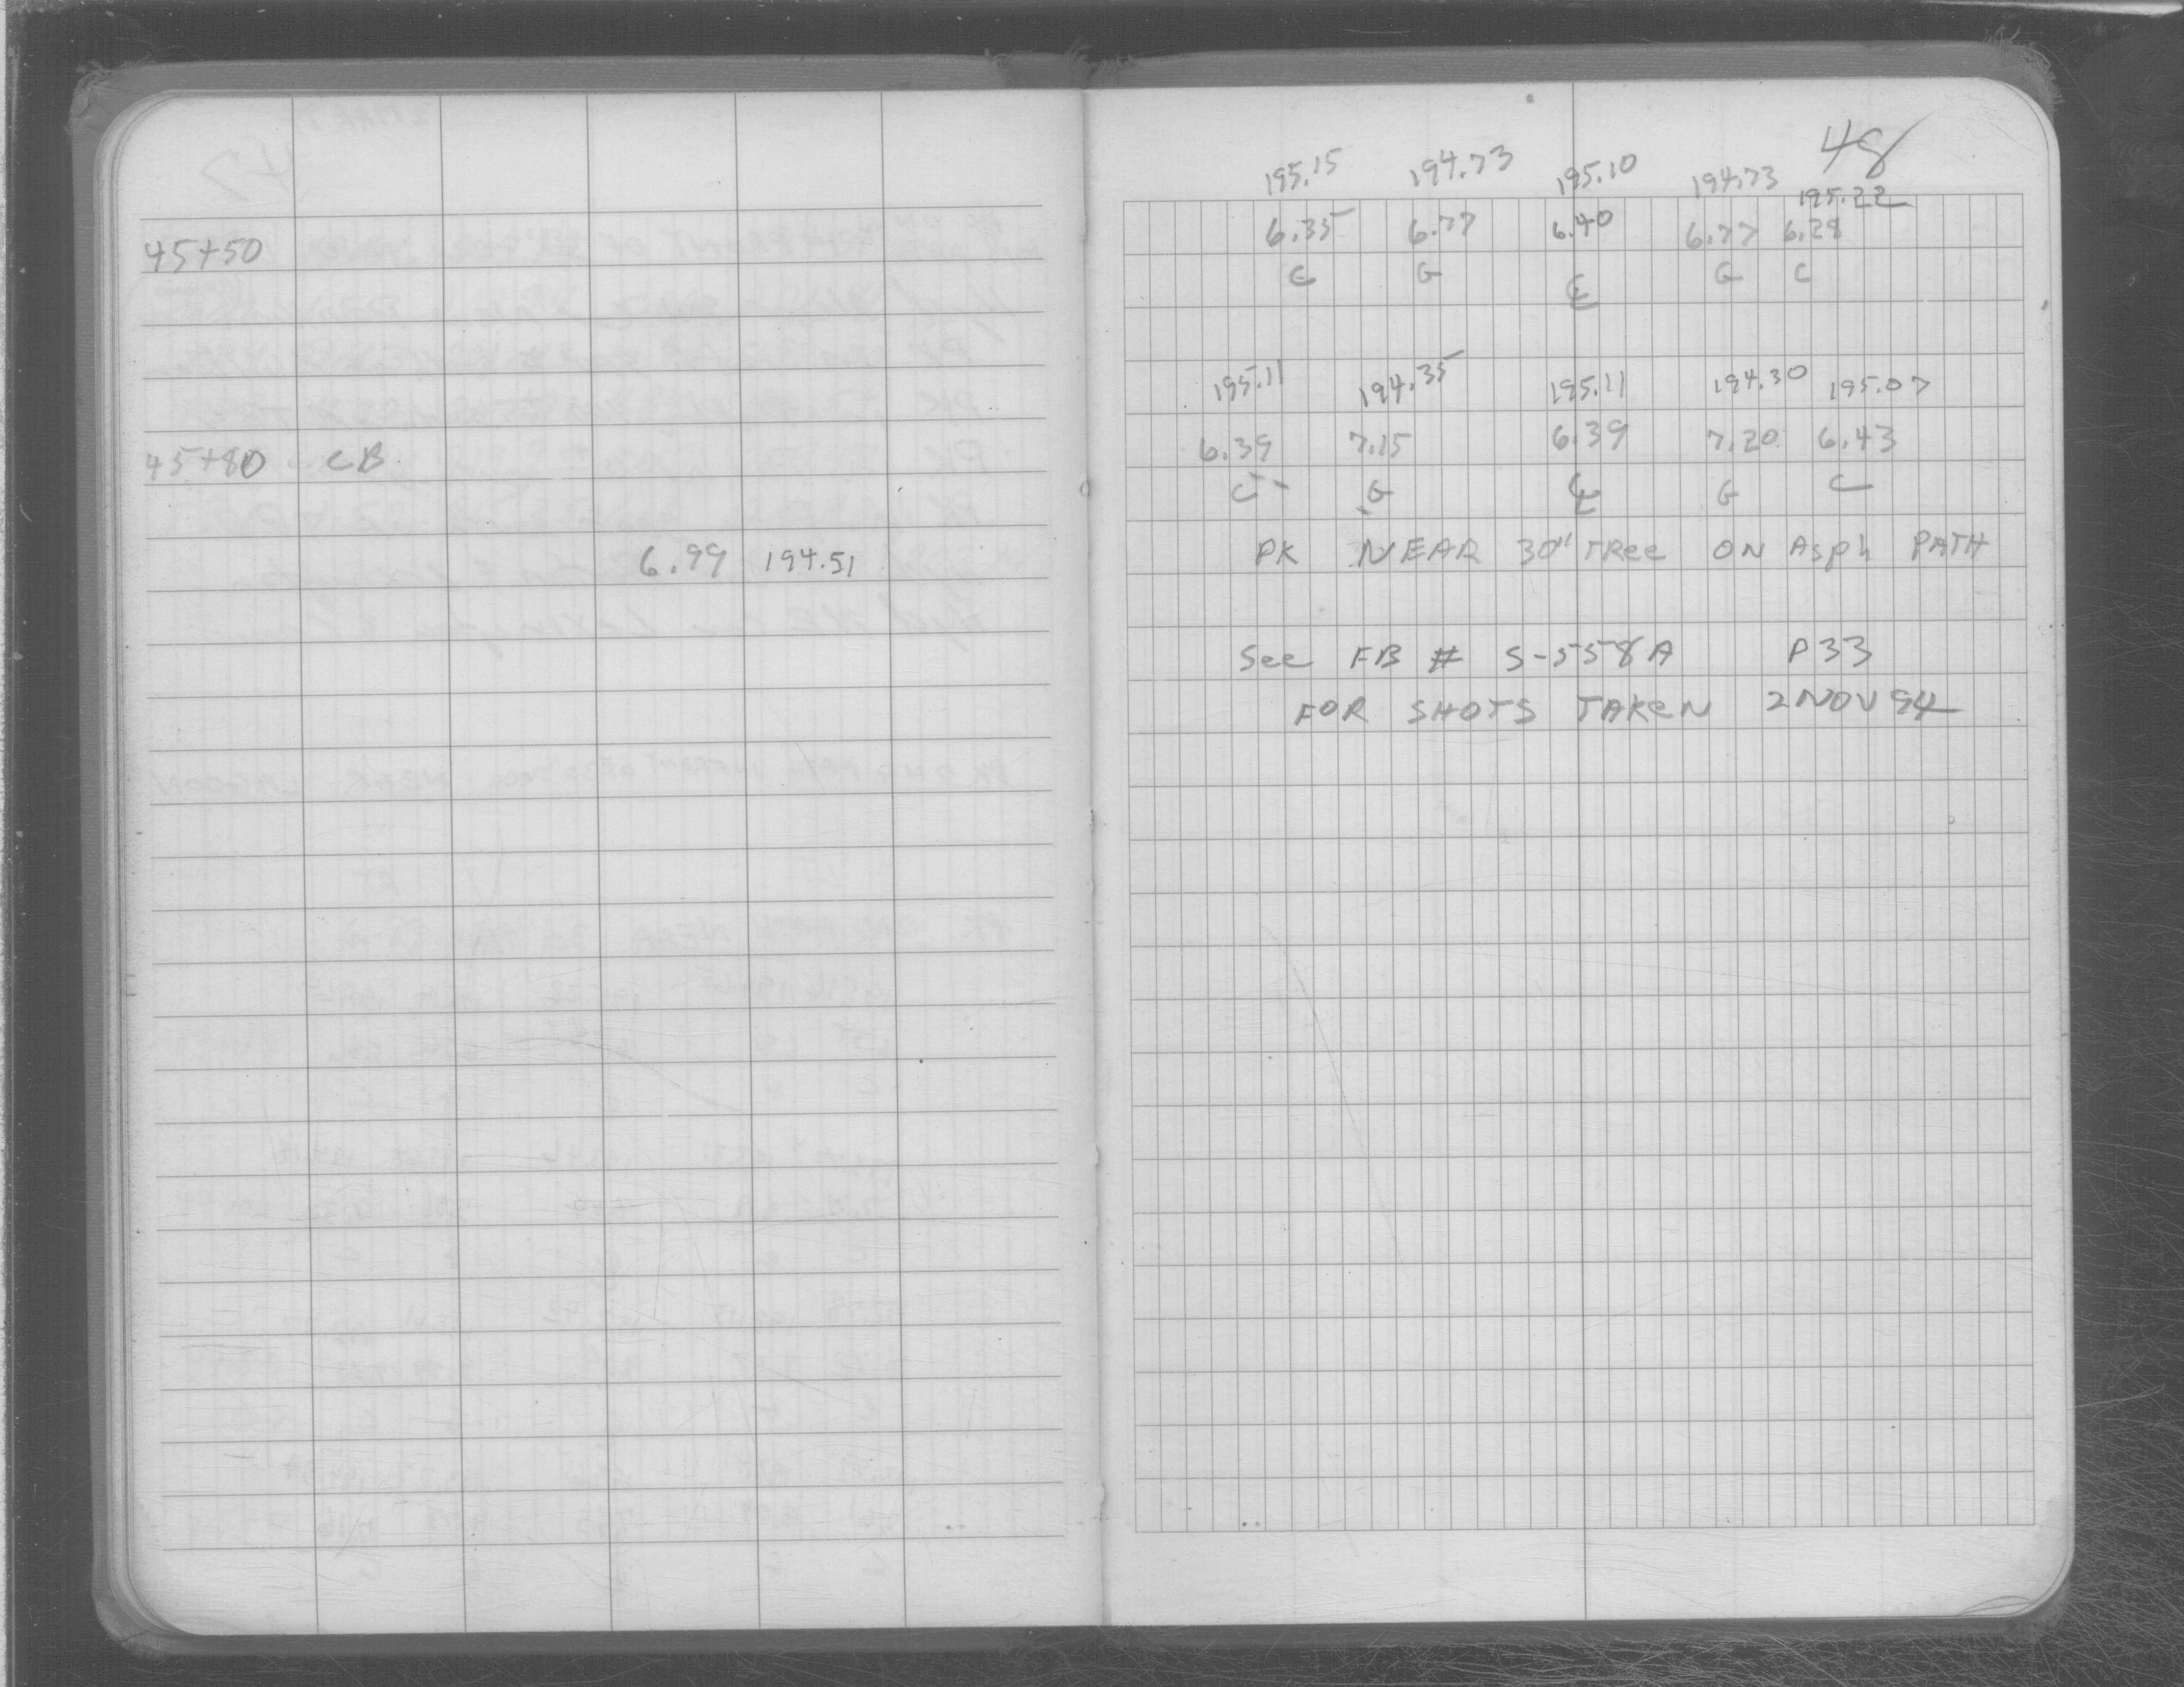 48
195.15 194.73 195.10 194.73 195.22
45+50 6.35 6.77 6.40 6.77 6.28
C G ℄ G C
195.11 194.35 195.11 194.30 195.07
45+80 CB 6.39 7.15 6.39 7.20 6.43
C G ℄ G C
6.99 194.51 PK NEAR 30" TRee ON Asph PATH
See FB # S-558A P33
FOR SHOTS TAKeN 2NOV94